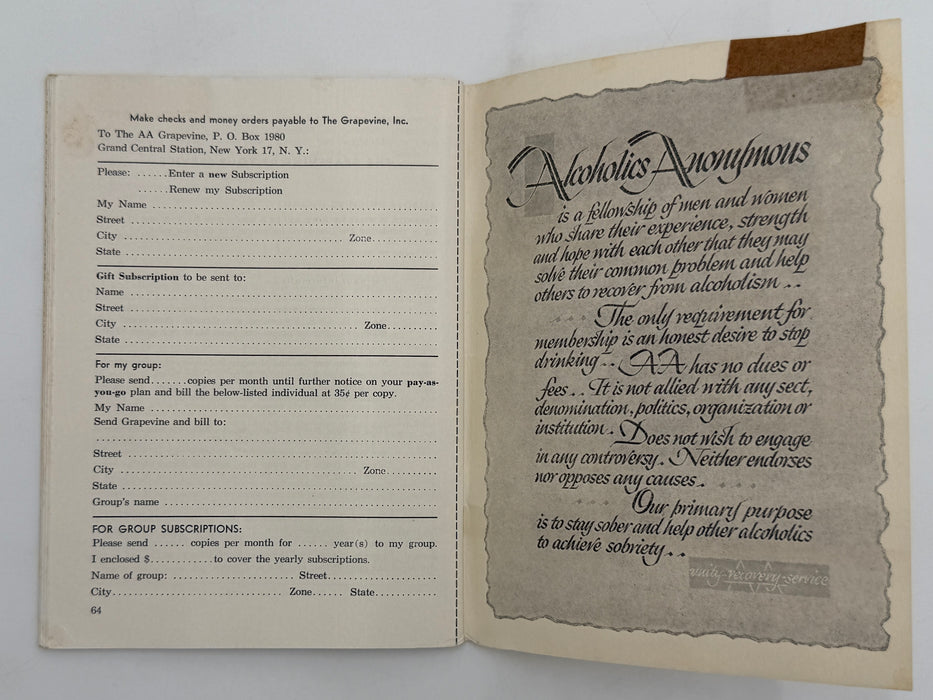 Make checks and money orders payable to The Grapevine, Inc.
To The AA Grapevine, P. O. Box 1980
Grand Central Station, New York 17, N. Y.:
Please: ......Enter a new Subscription
......Renew my Subscription
My Name ..........
Street ..........
City .......... Zone..........
State ..........
Gift Subscription to be sent to:
Name ..........
Street ..........
City .......... Zone..........
State ..........
For my group:
Please send.......copies per month until further notice on your pay-as-
you-go plan and bill the below-listed individual at 35¢ per copy.
My Name ..........
Send Grapevine and bill to:
..........
Street ..........
City .......... Zone..........
State ..........
Group's name ..........
FOR GROUP SUBSCRIPTIONS:
Please send ...... copies per month for ...... year(s) to my group.
I enclosed $............to cover the yearly subscriptions.
Name of group: .......... Street..........
City.......... Zone...... State..........
64
Alcoholics Anonymous
is a fellowship of men and women
who share their experience, strength
and hope with each other that they may
solve their common problem and help
others to recover from alcoholism . .
. . . . The only requirement for
membership is an honest desire to stop
drinking . . AA has no dues or
fees . . It is not allied with any sect,
denomination, politics, organization or
institution . Does not wish to engage
in any controversy . Neither endorses
nor opposes any causes .
Our primary purpose
is to stay sober and help other alcoholics
to achieve sobriety . .
unity-recovery-service